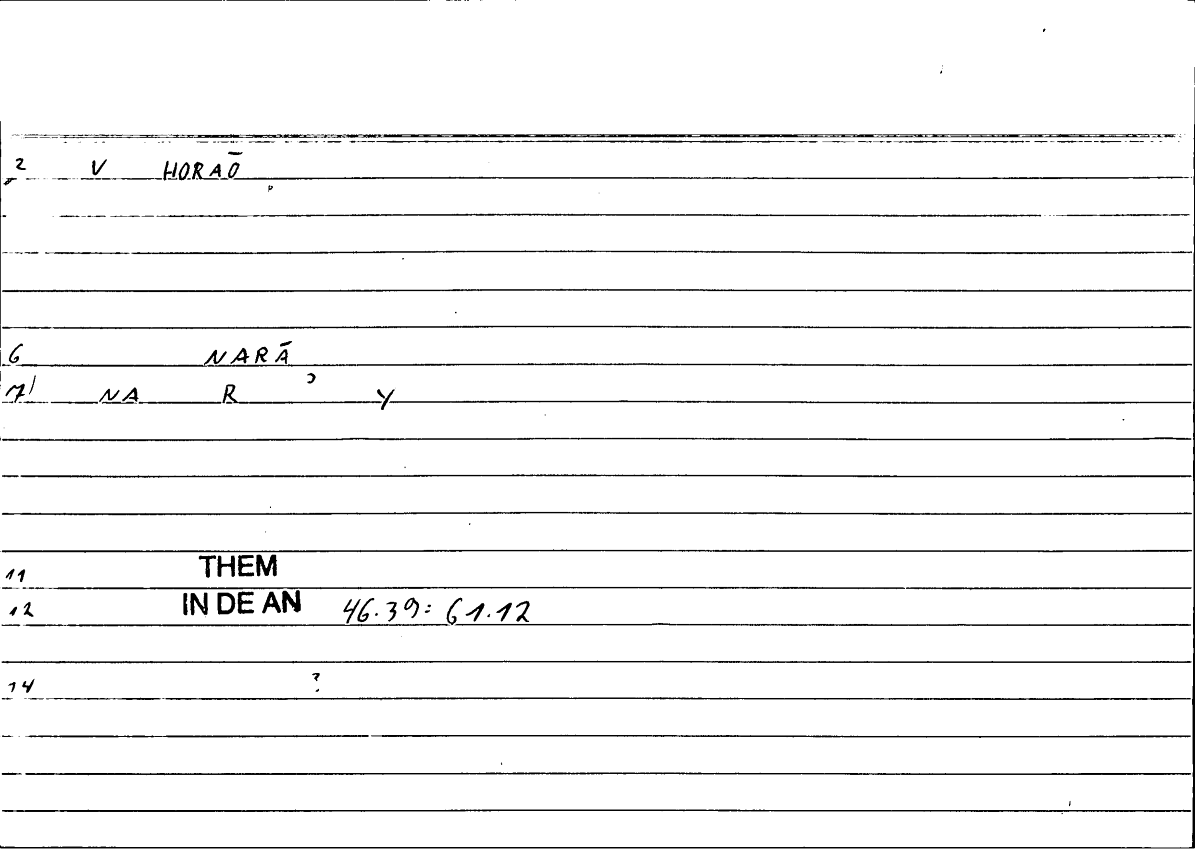 2 V HORAŌ
6 NARĀ
7) NA R ɔ Y
11 THEM
12 IN DE AN 46.39: 61.12
14 ?